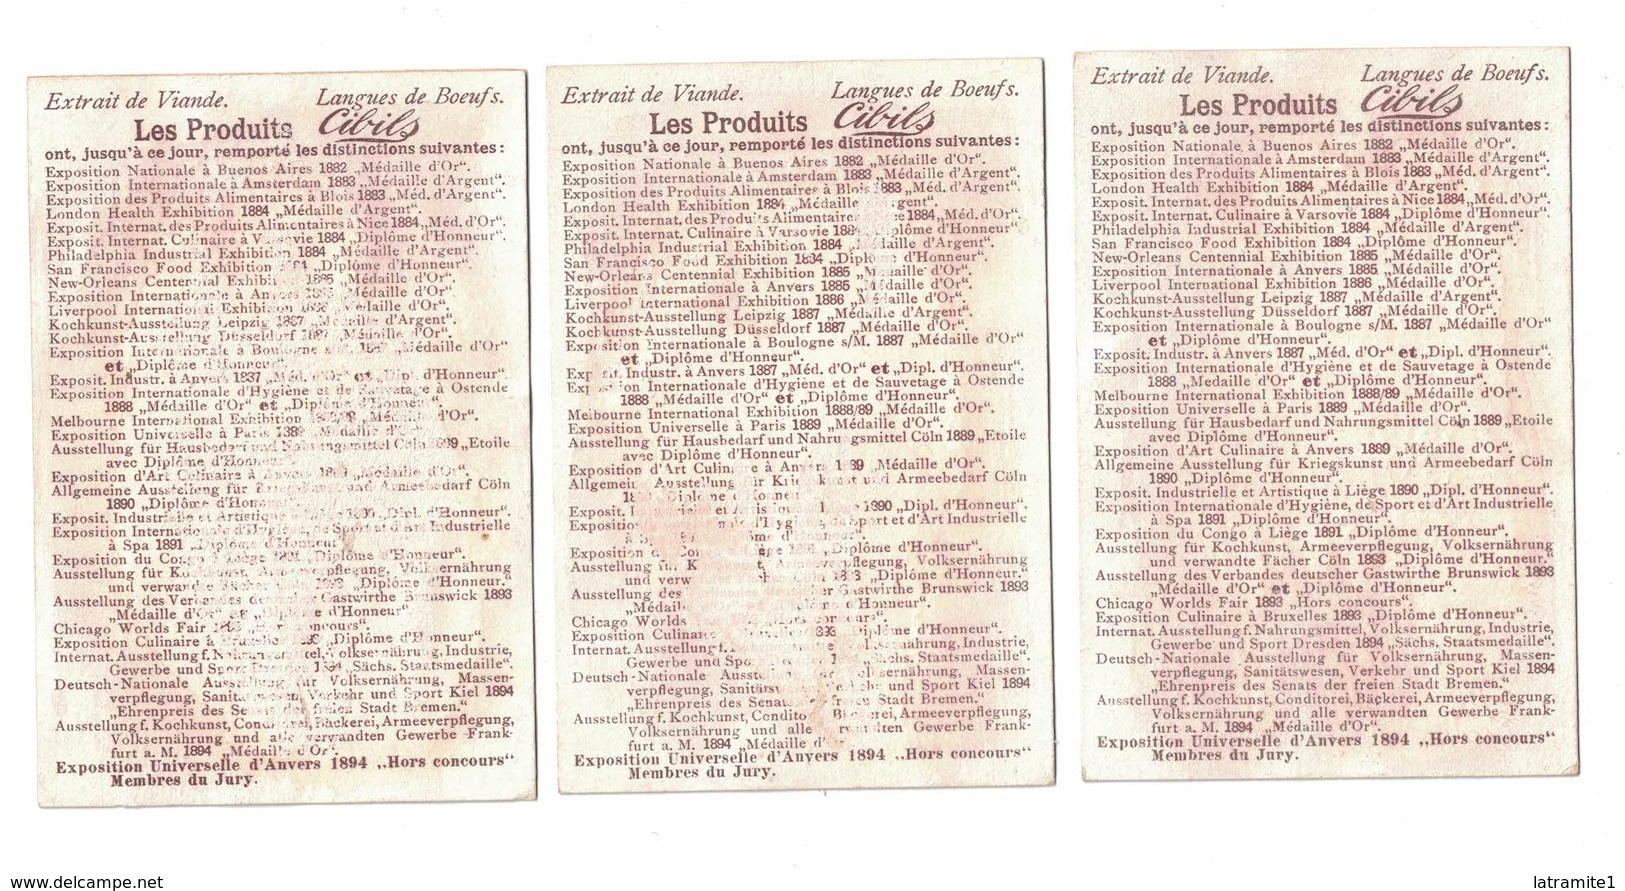 Extrait de Viande. Langues de Boeufs.
Les Produits Cibils
ont, jusqu'à ce jour, remporté les distinctions suivantes:
Exposition Nationale à Buenos Aires 1882 „Médaille d'Or“.
Exposition Internationale à Amsterdam 1883 „Médaille d'Argent“.
Exposition des Produits Alimentaires à Blois 1883 „Méd. d'Argent“.
London Health Exhibition 1884 „Médaille d'Argent“.
Exposit. Internat. des Produits Alimentaires à Nice 1884 „Méd. d'Or“.
Exposit. Internat. Culinaire à Varsovie 1884 „Diplôme d'Honneur“.
Philadelphia Industrial Exhibition 1884 „Médaille d'Argent“.
San Francisco Food Exhibition „Diplôme d'Honneur“.
New-Orleans Centennial 1885 „Médaille d'Or“.
Exposition Internationale à „Médaille d'Or“.
Liverpool International „Médaille d'Or“.
Kochkunst-Ausstellung Leipzig 1887 „Médaille d'Argent“.
Kochkunst-Ausstellung Düsseldorf 1887 „Médaille d'Or“.
Exposition Internationale à Boulogne s/M. 1887 „Médaille d'Or“
et „Diplôme d'Honneur“.
Exposit. Industr. à Anvers „Méd. d'Or“ et „Dipl. d'Honneur“.
Exposition Internationale d'Hygiène et de Sauvetage à Ostende
1888 „Médaille d'Or“ et „Diplôme d'Honneur“.
Melbourne International Exhibition „Médaille d'Or“.
Exposition Universelle à Paris „Médaille d'Or“.
Ausstellung für Hausbedarf und Nahrungsmittel Cöln 1889 „Etoile
avec Diplôme d'Honneur“.
Exposition d'Art Culinaire à „Médaille d'Or“.
Allgemeine Ausstellung für und Armeebedarf Cöln
1890 „Diplôme
Exposit. Industrielle et „Dipl. d'Honneur“.
Exposition Internationale d'Hygiène, de Sport et d'Art Industrielle
à Spa 1891 „Diplôme
Exposition du Congo „Diplôme d'Honneur“.
Ausstellung für Armeeverpflegung, Volksernährung
und verwandte „Diplôme d'Honneur.“
Ausstellung des Verbandes Gastwirthe Brunswick 1893
„Médaille et „Diplôme d'Honneur“.
Chicago Worlds Fair
Exposition Culinaire à „Diplôme d'Honneur“.
Internat. Ausstellung f. Volksernährung, Industrie,
Gewerbe und Sport „Sächs. Staatsmedaille“.
Deutsch-Nationale Ausstellung für Volksernährung, Massen-
verpflegung, Verkehr und Sport Kiel 1894
„Ehrenpreis des freien Stadt Bremen.“
Ausstellung f. Kochkunst, Bäckerei, Armeeverpflegung,
Volksernährung und alle verwandten Gewerbe Frank-
furt a. M. 1894 „Médaille d'Or“.
Exposition Universelle d'Anvers 1894 „Hors concours“
Membres du Jury.
Extrait de Viande. Langues de Boeufs.
Les Produits Cibils
ont, jusqu'à ce jour, remporté les distinctions suivantes:
Exposition Nationale à Buenos Aires 1882 „Médaille d'Or“.
Exposition Internationale à Amsterdam 1883 „Médaille d'Argent“.
Exposition des Produits Alimentaires à Blois 1883 „Méd. d'Argent“.
London Health Exhibition 1884 „Médaille
Exposit. Internat. des Produits Alimentaires 1884 „Méd. d'Or“.
Exposit. Internat. Culinaire à Varsovie „Diplôme d'Honneur“.
Philadelphia Industrial Exhibition 1884 „Médaille d'Argent“.
San Francisco Food Exhibition 1884 „Diplôme d'Honneur“.
New-Orleans Centennial Exhibition 1885 „Médaille d'Or“.
Exposition Internationale à Anvers 1885 „Médaille d'Or“.
Liverpool International Exhibition 1886 „Médaille d'Or“.
Kochkunst-Ausstellung Leipzig 1887 „Médaille d'Argent“.
Kochkunst-Ausstellung Düsseldorf 1887 „Médaille d'Or“.
Exposition Internationale à Boulogne s/M. 1887 „Médaille d'Or“
et „Diplôme d'Honneur“.
Industr. à Anvers 1887 „Méd. d'Or“ et „Dipl. d'Honneur“.
Internationale d'Hygiène et de Sauvetage à Ostende
1888 „Médaille d'Or“ et „Diplôme d'Honneur“.
Melbourne International Exhibition 1888/89 „Médaille d'Or“.
Exposition Universelle à Paris 1889 „Médaille d'Or“.
Ausstellung für Hausbedarf und Nahrungsmittel Cöln 1889 „Etoile
avec Diplôme d'Honneur“.
Exposition d'Art Culinaire à Anvers 1889 „Médaille d'Or“.
Allgemeine Ausstellung für und Armeebedarf Cöln
„Diplôme
Exposit. 1890 „Dipl. d'Honneur“.
Exposition d'Hygiène, de Sport et d'Art Industrielle
d'Honneur“.
Exposition „Diplôme d'Honneur“.
Ausstellung für Armeeverpflegung, Volksernährung
und „Diplôme d'Honneur.“
Ausstellung des Gastwirthe Brunswick 1893
„Médaille d'Or“ et „Diplôme d'Honneur“.
Chicago Worlds
Exposition Culinaire „Diplôme d'Honneur“.
Internat. Ausstellung f. Industrie,
Gewerbe und Staatsmedaille“.
Deutsch-Nationale Volksernährung, Massen-
verpflegung, Verkehr und Sport Kiel 1894
„Ehrenpreis des Senats freien Stadt Bremen.“
Ausstellung f. Kochkunst, Armeeverpflegung,
Volksernährung und alle verwandten Gewerbe Frank-
furt a. M. 1894 „Médaille
Exposition Universelle d'Anvers 1894 „Hors concours“
Membres du Jury.
Extrait de Viande. Langues de Boeufs.
Les Produits Cibils
ont, jusqu'à ce jour, remporté les distinctions suivantes:
Exposition Nationale à Buenos Aires 1882 „Médaille d'Or“.
Exposition Internationale à Amsterdam 1883 „Médaille d'Argent“.
Exposition des Produits Alimentaires à Blois 1883 „Méd. d'Argent“.
London Health Exhibition 1884 „Médaille d'Argent“.
Exposit. Internat. des Produits Alimentaires à Nice 1884 „Méd. d'Or“.
Exposit. Internat. Culinaire à Varsovie 1884 „Diplôme d'Honneur“.
Philadelphia Industrial Exhibition 1884 „Médaille d'Argent“.
San Francisco Food Exhibition 1884 „Diplôme d'Honneur“.
New-Orleans Centennial Exhibition 1885 „Médaille d'Or“.
Exposition Internationale à Anvers 1885 „Médaille d'Or“.
Liverpool International Exhibition 1886 „Médaille d'Or“.
Kochkunst-Ausstellung Leipzig 1887 „Médaille d'Argent“.
Kochkunst-Ausstellung Düsseldorf 1887 „Médaille d'Or“.
Exposition Internationale à Boulogne s/M. 1887 „Médaille d'Or“
et „Diplôme d'Honneur“.
Exposit. Industr. à Anvers 1887 „Méd. d'Or“ et „Dipl. d'Honneur“.
Exposition Internationale d'Hygiène et de Sauvetage à Ostende
1888 „Medaille d'Or“ et „Diplôme d'Honneur“.
Melbourne International Exhibition 1888/89 „Médaille d'Or“.
Exposition Universelle à Paris 1889 „Médaille d'Or“.
Ausstellung für Hausbedarf und Nahrungsmittel Cöln 1889 „Etoile
avec Diplôme d'Honneur“.
Exposition d'Art Culinaire à Anvers 1889 „Médaille d'Or“.
Allgemeine Ausstellung für Kriegskunst und Armeebedarf Cöln
1890 „Diplôme d'Honneur“.
Exposit. Industrielle et Artistique à Liège 1890 „Dipl. d'Honneur“.
Exposition Internationale d'Hygiène, de Sport et d'Art Industrielle
à Spa 1891 „Diplôme d'Honneur“.
Exposition du Congo à Liège 1891 „Diplôme d'Honneur“.
Ausstellung für Kochkunst, Armeeverpflegung, Volksernährung
und verwandte Fächer Cöln 1893 „Diplôme d'Honneur.“
Ausstellung des Verbandes deutscher Gastwirthe Brunswick 1893
„Médaille d'Or“ et „Diplôme d'Honneur“.
Chicago Worlds Fair 1893 „Hors concours“.
Exposition Culinaire à Bruxelles 1893 „Diplôme d'Honneur“.
Internat. Ausstellung f. Nahrungsmittel, Volksernährung, Industrie,
Gewerbe und Sport Dresden 1894 „Sächs. Staatsmedaille“.
Deutsch-Nationale Ausstellung für Volksernährung, Massen-
verpflegung, Sanitätswesen, Verkehr und Sport Kiel 1894
„Ehrenpreis des Senats der freien Stadt Bremen.“
Ausstellung f. Kochkunst, Conditorei, Bäckerei, Armeeverpflegung,
Volksernährung und alle verwandten Gewerbe Frank-
furt a. M. 1894 „Médaille d'Or“.
Exposition Universelle d'Anvers 1894 „Hors concours“
Membres du Jury.
www.delcampe.net
latramite1